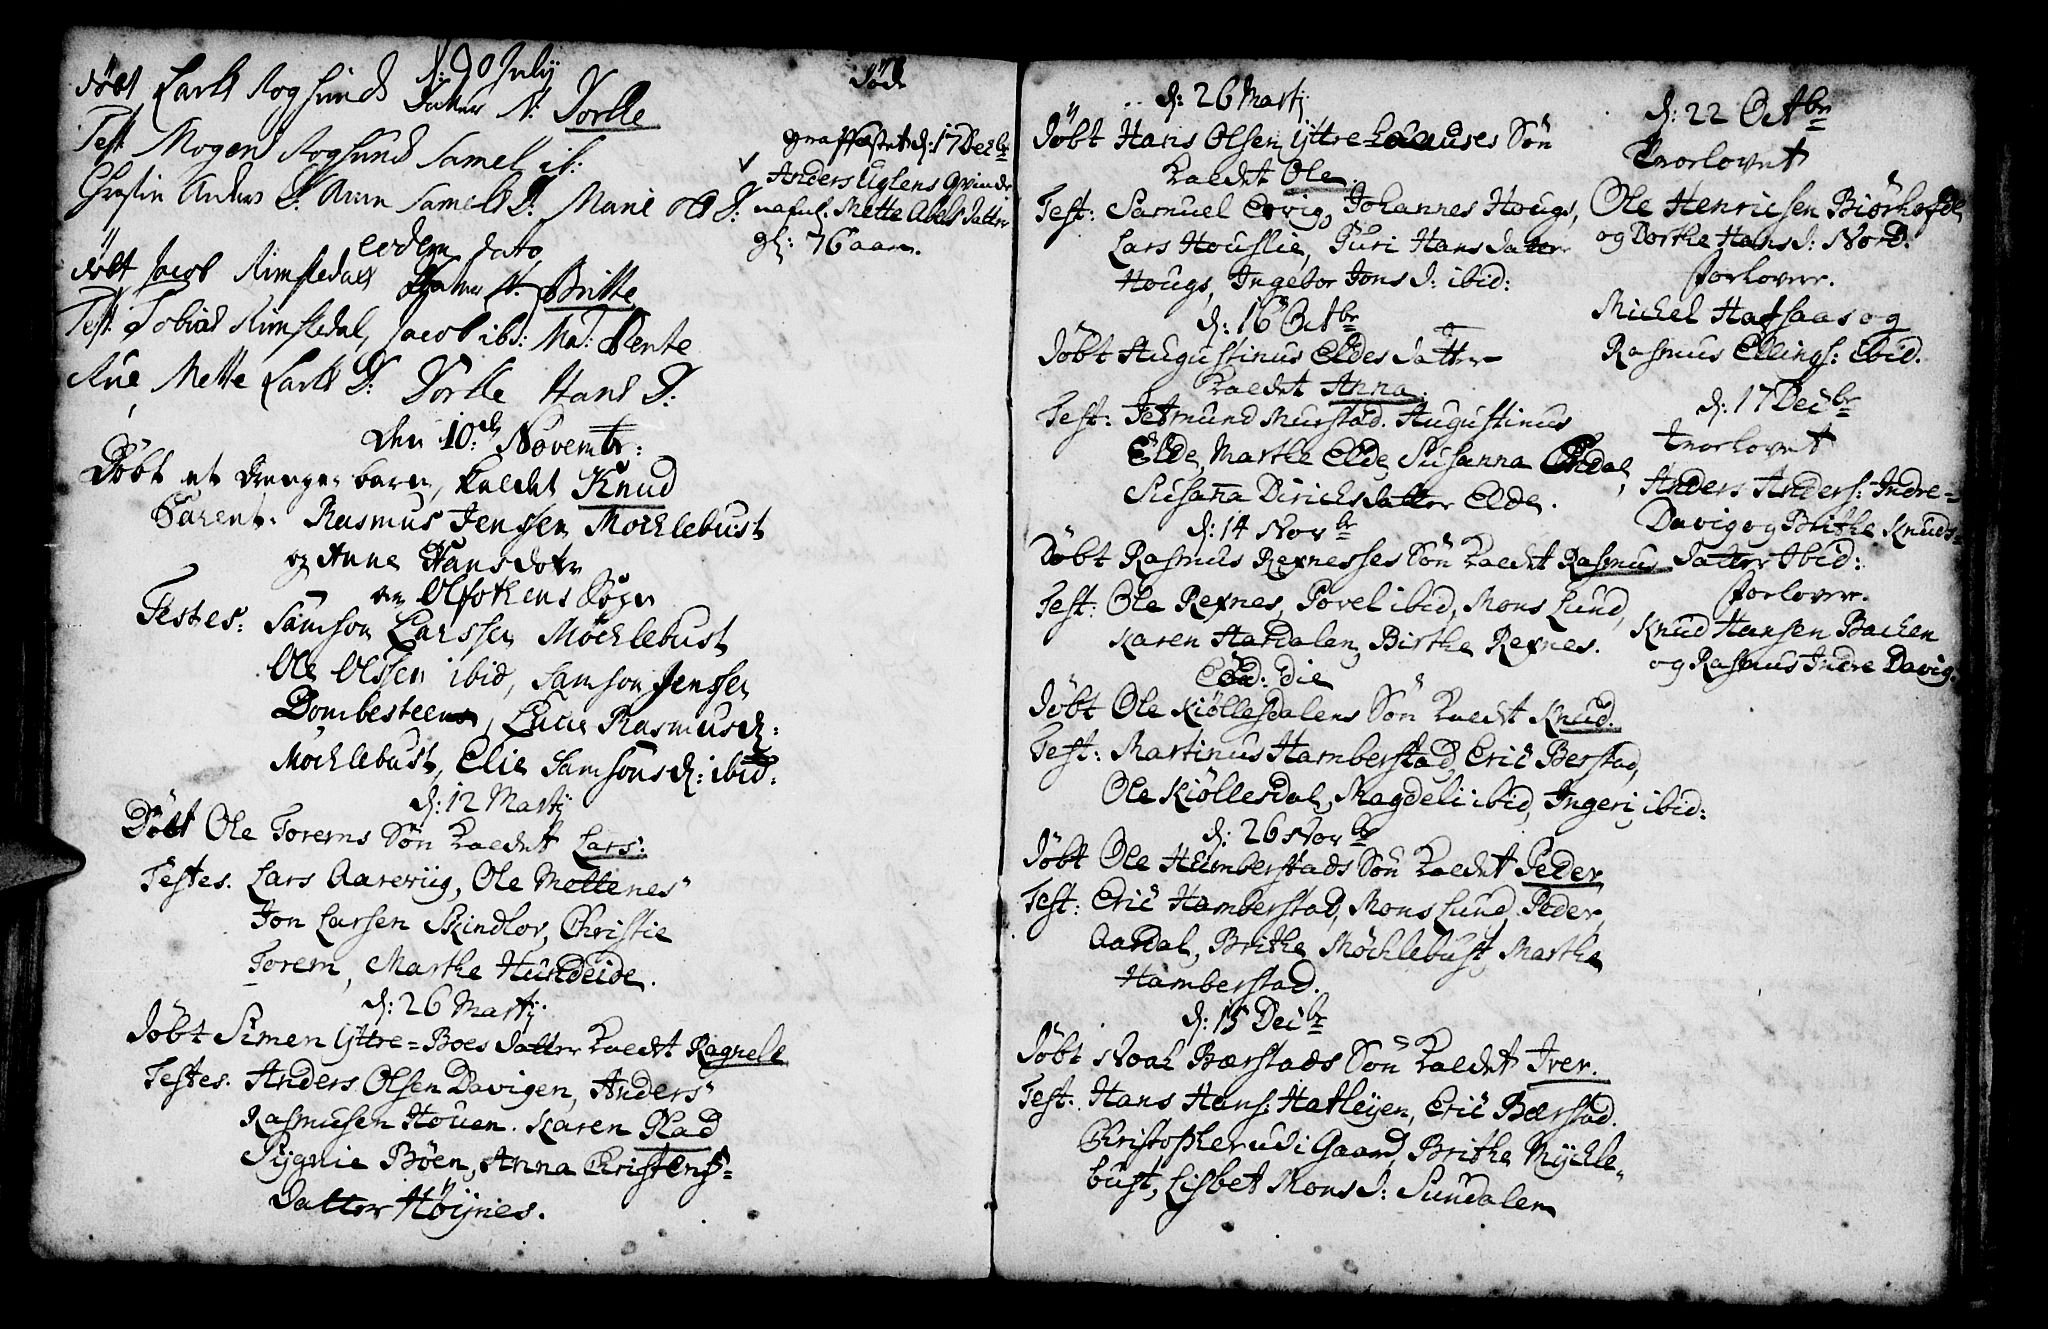 d: 90 July
døbt Lars Rogsund Datter N: Dorte
Test: Mogens Rogsund Samel ib:
Christin Anders D: Anne Samels D: Marie Ols D:
eodem dato
døbt Jacob Rimstedals Datter N: Britte
Test: Tobias Rimstedal, Jacob ibd: Ma: Bente
Aue, Mette Lars D: Dorte Hans D:
den 10de Novembr:
Døbt et Drenge barn, kaldet Knud
Parent: Rasmus Jenssen Mochlebust
og Anne Hansdotr
Testes: Samson Larssen Mochlebust
Ole Olssen ibid, Samson Jenssen
Dombesteen, Lucie Rasmusd:
Mochlebust, Elie Samsonsd: ibid:
d: 12 Martj
Døbt Ole Torems Søn kaldet Lars:
Testes. Lars Aareviig, Ole Meltenes
Jon Larsen Skindlov, Christie
Torem, Marthe Hundeide.
d: 26 Martij
Døbt Simen Yttre=Boes datter kaldet Ragnele
Testes. Anders Olsen Davigen, Anders
Rasmusen Houen. Karen Rad
Sygnie Bøen, Anna Christens=
datter Høynes.
Døde
graffæstet d: 17 Decbr
Anders Uglens Qvinde
nafnl. Mette Abels datter
gl: 76 aar.
d: 26 Martj
Døbt Hans Olsen Yttre Søn
kaldet Ole.
Test: Samuel Ervig, Johannes Hougs,
Lars Houslie, Guri Hans datter
Hougs, Ingebor Jons d: ibid:
d: 16 Octbr
Døbt Augustinus Eldes datter
kaldet Anna.
Test: Jetmund Murstad. Augustinus
Elde, Marthe Elde, Susanna Endal,
Susanna Dirichs datter Elde.
d: 14 Novbr
Døbt Rasmus Rexnesses Søn kaldet Rasmus
Test: Ole Rexnes, Povel ibid, Mons Lund,
Karen Hardalen, Birthe Rexnes.
Eod: die
Døbt Ole Kiøllesdalens Søn kaldet Knud.
Test: Martinus Hamberstad, Eric Berstad,
Ole Kiøllesdal, Magdeli ibid, Ingerj ibid:
d: 26 Novbr
Døbt Ole Humberstads Søn kaldet Peder,
Test: Eric Hamberstad, Mons Lund, Peder,
Aardal, Brithe Møchlebust, Marthe
Hamberstad.
d: 15 Decbr
Døbt Noah Bærstads Søn kaldet Iver.
Test: Hans Hans: Hatleyen, Eric Bærstad.
Christopher udi Gaard, Brithe Mychle-
bust, Lisbet Mons d: Sundalen
d: 22 Octbr
Trorlovet
Ole Henrichsen
og Dorthe Hans d: Nord:
forlover.
Michel Hafsaas og
Rasmus Ellings: ibid.
d: 17 Decbr
Trorlovet
Anders Anders: Indre=
Davig og Brithe Knuds=
datter Ibid:
forlover.
Knud Hansen Bachen
og Rasmus Indre Davig.